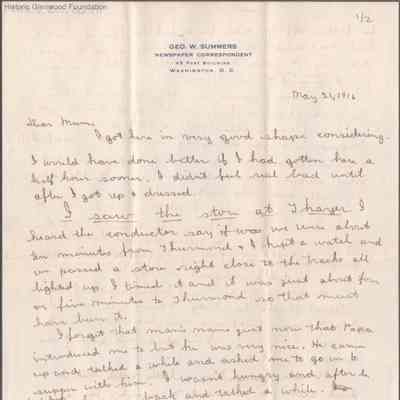 Historic Glenwood Foundation
1/2
GEO. W. SUMMERS
NEWSPAPER CORRESPONDENT
45 POST BUILDING
WASHINGTON, D. C.
May 21, 1916
Dear Mum:
I got here in very good shape considering.
I would have done better if I had gotten here a
half hour sooner. I didn't feel real bad until
after I got up & dressed.
I saw the store at Thayer I
heard the conductor say it was we were about
ten minutes from Thurmond & I kept a watch and
we passed a store right close to the tracks all
lighted up. I timed it and it was just about four
or five minutes to Thurmond so that must
have been it.
I forget that man's name just now that Papa
introduced me to but he was very nice. He came
up and talked a while and asked me to go in to
supper with him. I wasn't hungry and after he
back and talked a while.